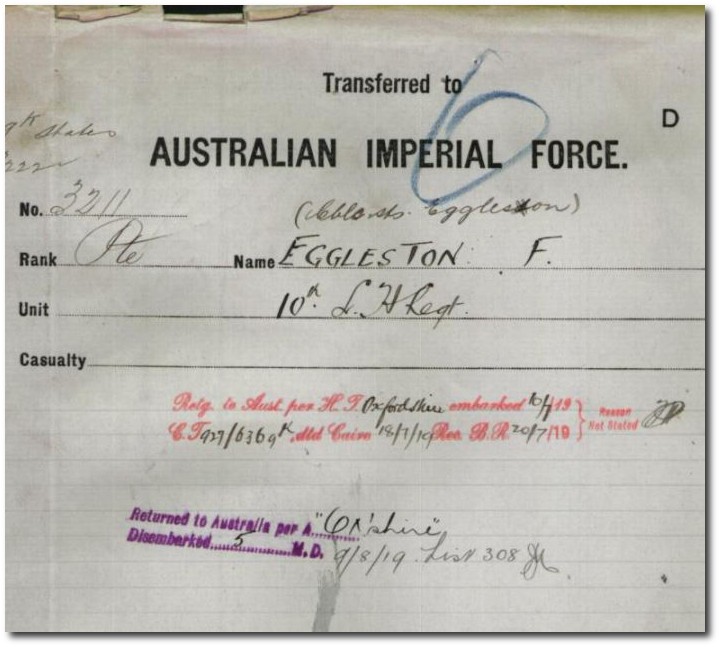 Transferred to
6
D
AUSTRALIAN IMPERIAL FORCE.
No. 3211
Eggleston)
Rank Pte Name EGGLESTON F.
Unit 10th L. H Regt.
Casualty
Retg. to Aust. per H. T. Oxfordshire embarked 10/7/19 } Reason
C.T 927/636 9K dtd Cairo 18/7/19 Rec. B.R. 20/7/19 } Not Stated
Returned to Australia per A. "Ox'shire"
Disembarked 5 M.D. 9/8/19. List 308